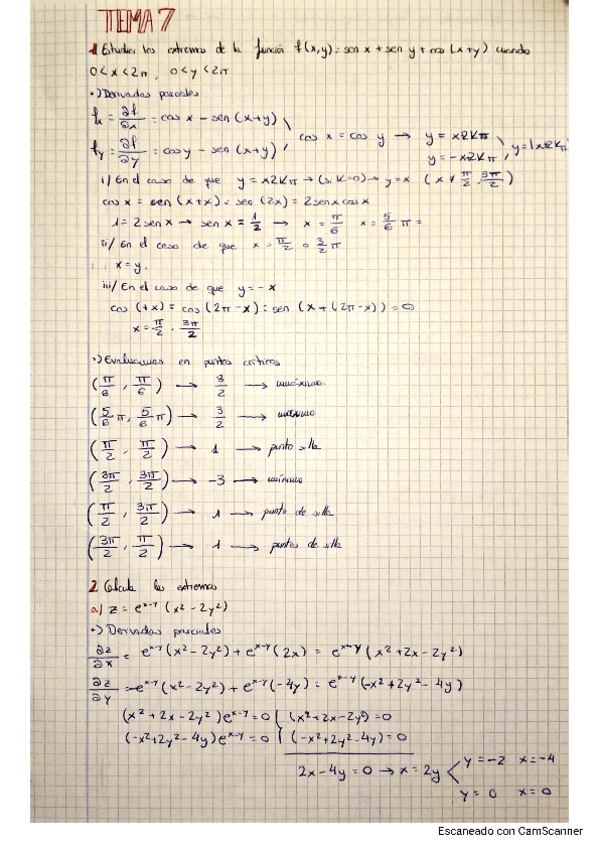 TEMA 7
1 Estudiar los extremos de la función f(x,y) = sen x + sen y + cos (x+y) cuando
0 < x < 2π, 0 < y < 2π
•) Derivadas parciales
fx = ∂f/∂x = cos x - sen (x+y)
cos x = cos y → y = x2Kπ
fy = ∂f/∂y = cos y - sen (x+y)
y = -x2Kπ
i/ En el caso de que y = x2Kπ → (si K=0) → y = x (x ≠ π/2, 3π/2)
cos x = sen (x+x) = sen (2x) = 2 sen x cos x
1 = 2 sen x → sen x = 1/2 → x = π/6 x = 5/6 π =
ii/ En el caso de que x = π/2 o 3/2 π
x = y.
iii/ En el caso de que y = -x
cos (+x) = cos (2π-x) = sen (x + (2π-x)) = 0
x = π/2 . 3π/2
•) Evaluamos en puntos críticos
(π/6, π/6) → 3/2 → máximo
(5/6 π, 5/6 π) → 3/2 → máximo
(π/2, π/2) → 1 → punto silla
(3π/2, 3π/2) → -3 → mínimo
(π/2, 3π/2) → 1 → punto de silla
(3π/2, π/2) → 1 → puntos de silla
2 Calcula los extremos
a/ z = e^x-y (x² - 2y²)
•) Derivadas parciales
∂z/∂x = e^x-y (x² - 2y²) + e^x-y (2x) = e^x-y (x² + 2x - 2y²)
∂z/∂y = -e^x-y (x² - 2y²) + e^x-y (-4y) = e^x-y (-x² + 2y² - 4y)
(x² + 2x - 2y²) e^x-y = 0 { (x² + 2x - 2y²) = 0
(-x² + 2y² - 4y) e^x-y = 0 { (-x² + 2y² - 4y) = 0
y = -2 x = -4
2x - 4y = 0 → x = 2y
y = 0 x = 0
Escaneado con CamScanner